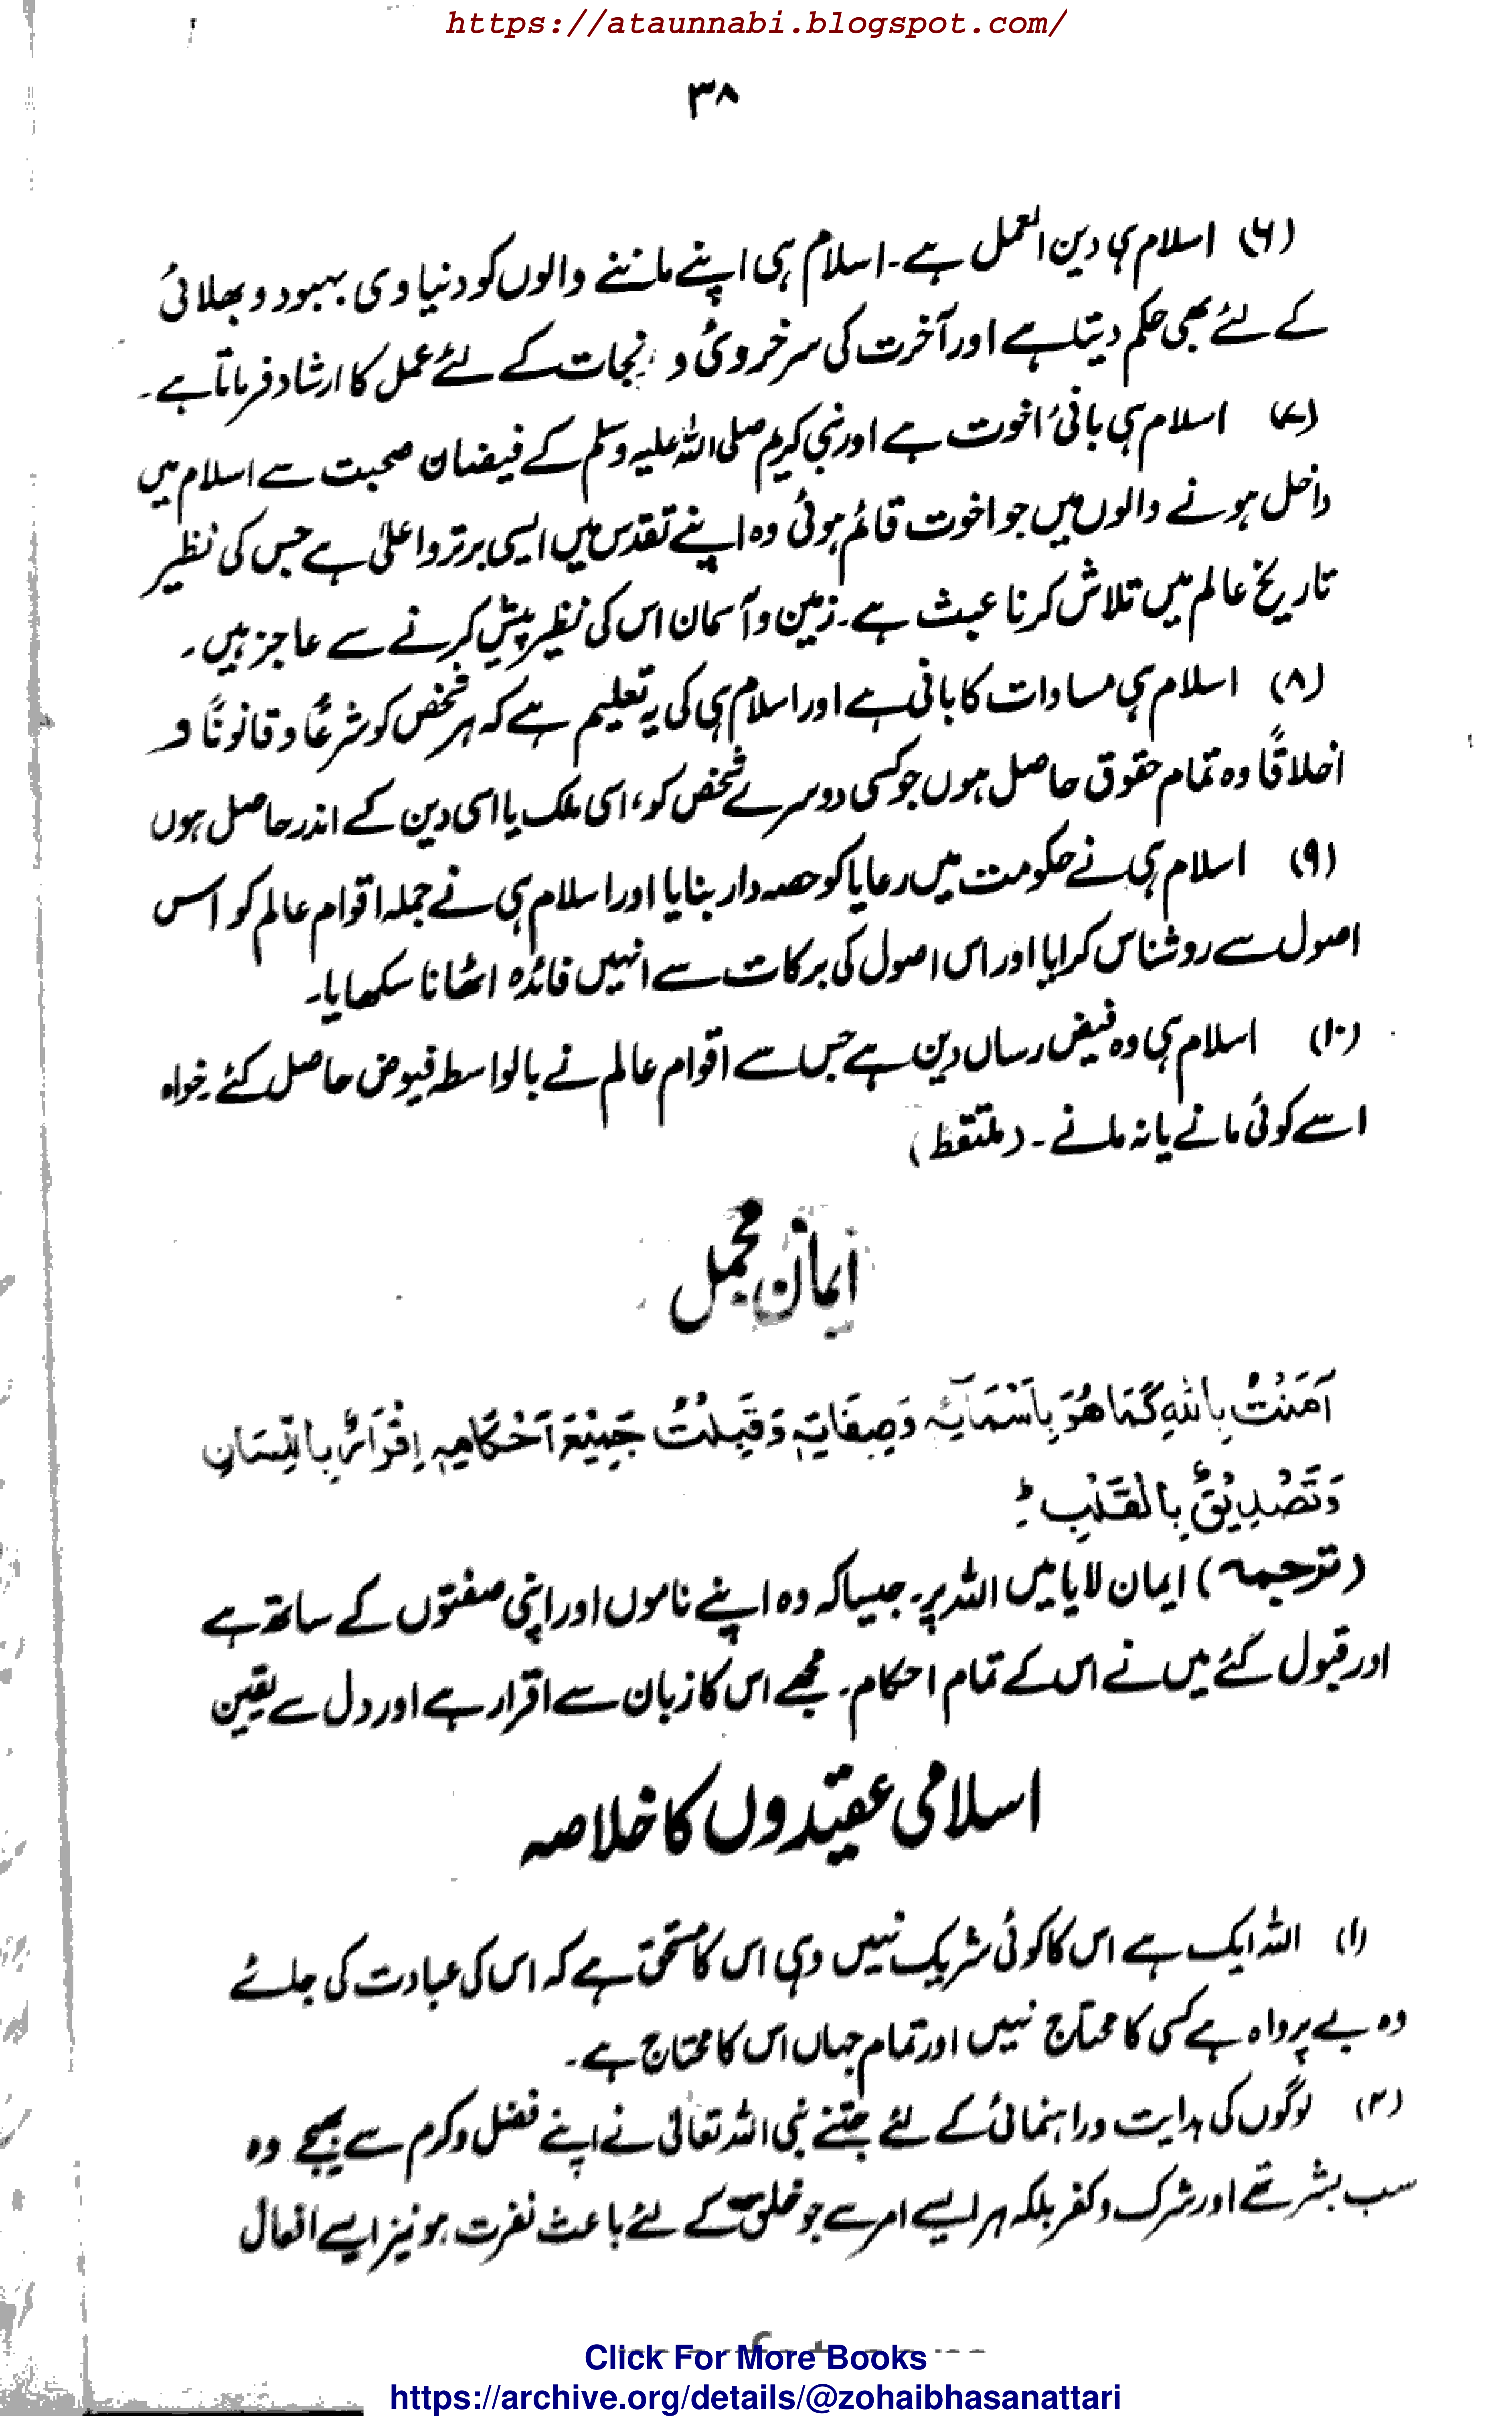 https://ataunnabi.blogspot.com/
۳۸
(۶) اسلام ہی دین العمل ہے۔ اسلام ہی اپنے ماننے والوں کو دنیاوی بہبود و بھلائی
کے لئے بھی حکم دیتا ہے اور آخرت کی سرخروئی و نجات کے لئے عمل کا ارشاد فرماتا ہے۔
(۷) اسلام ہی بانیٔ اخوت ہے اور نبی کریم صلی اللہ علیہ وسلم کے فیضان صحبت سے اسلام میں
داخل ہونے والوں میں جو اخوت قائم ہوئی وہ اپنے تقدس میں ایسی برتر و اعلیٰ ہے جس کی نظیر
تاریخ عالم میں تلاش کرنا عبث ہے۔ زمین و آسمان اس کی نظیر پیش کرنے سے عاجز ہیں۔
(۸) اسلام ہی مساوات کا بانی ہے اور اسلام ہی کی یہ تعلیم ہے کہ ہر شخص کو شرعًا و قانونًا و
اخلاقًا وہ تمام حقوق حاصل ہوں جو کسی دوسرے شخص کو، اسی ملک یا اسی دین کے اندر حاصل ہوں
(۹) اسلام ہی نے حکومت میں رعایا کو حصہ دار بنایا اور اسلام ہی نے جملہ اقوام عالم کو اس
اصول سے روشناس کرایا اور اس اصول کی برکات سے انہیں فائدہ اٹھانا سکھایا۔
(۱۰) اسلام ہی وہ فیض رساں دین ہے جس سے اقوام عالم نے بالواسطہ فیوض حاصل کئے خواہ
اسے کوئی مانے یا نہ مانے۔ (ملتقط)
ایمان مجمل
آمَنْتُ بِاللّٰهِ كَمَا هُوَ بِاَسْمَآئِهٖ وَصِفَاتِهٖ وَقَبِلْتُ جَمِيْعَ اَحْكَامِهٖ اِقْرَارٌ بِاللِّسَانِ
وَتَصْدِيْقٌ بِالْقَلْبِ ؕ
(ترجمہ) ایمان لایا میں اللہ پر۔ جیسا کہ وہ اپنے ناموں اور اپنی صفتوں کے ساتھ ہے
اور قبول کئے میں نے اس کے تمام احکام۔ مجھے اس کا زبان سے اقرار ہے اور دل سے یقین
اسلامی عقیدوں کا خلاصہ
(۱) اللہ ایک ہے اس کا کوئی شریک نہیں وہی اس کا مستحق ہے کہ اس کی عبادت کی جائے
وہ بے پرواہ ہے کسی کا محتاج نہیں اور تمام جہاں اس کا محتاج ہے۔
(۲) لوگوں کی ہدایت و راہنمائی کے لئے جتنے نبی اللہ تعالیٰ نے اپنے فضل و کرم سے بھیجے وہ
سب بشر تھے اور شرک و کفر بلکہ ہر ایسے امر سے جو خلق کے لئے باعث نفرت ہو نیز ایسے افعال
Click For More Books
https://archive.org/details/@zohaibhasanattari